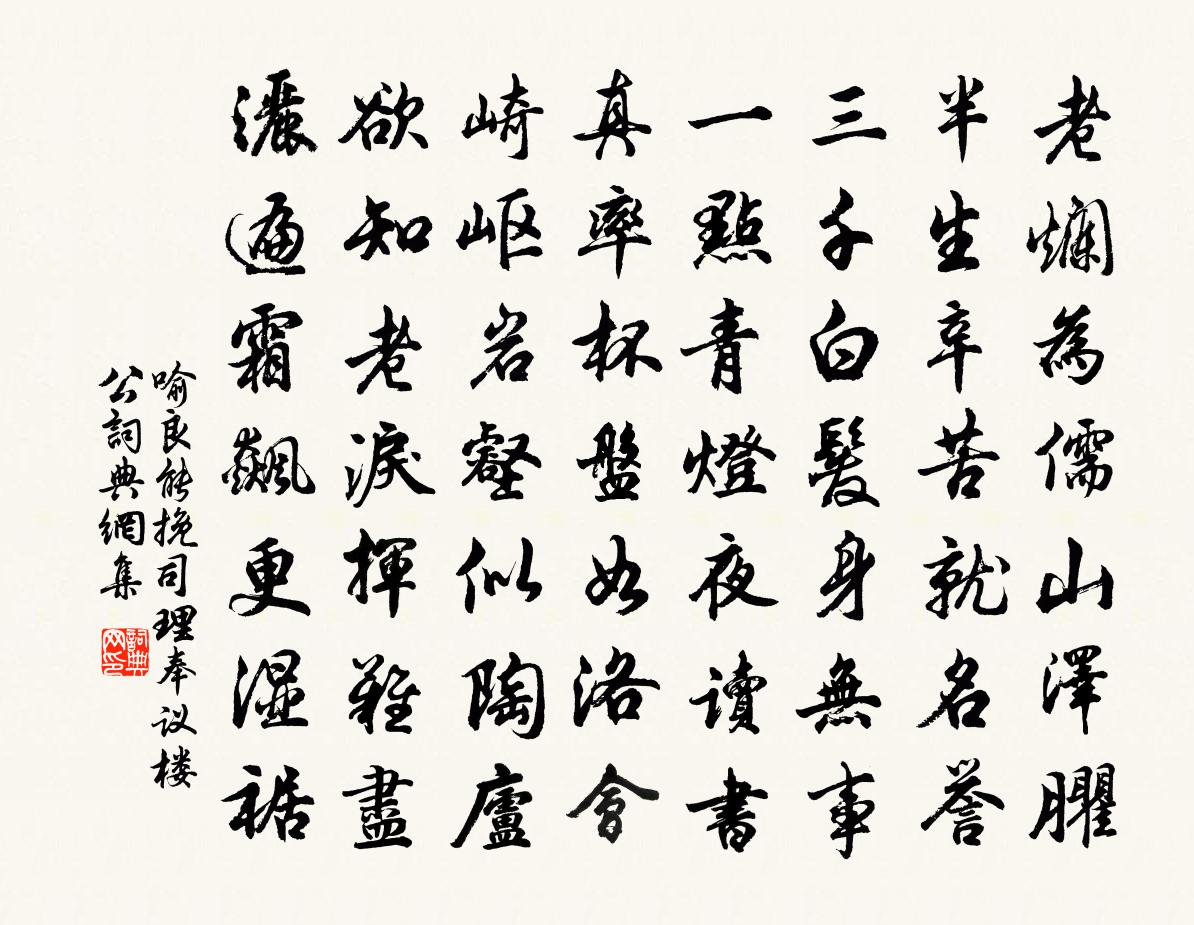 老爛為儒山澤臞
半生辛苦就名譽
三千白髮身無事
一點青燈夜讀書
真率杯盤如洛會
崎岖岩壑似陶廬
欲知老淚揮難盡
灑遍霜飆更濕裾
喻良能挽司理奉议楼
公詞典網集
詞典网印